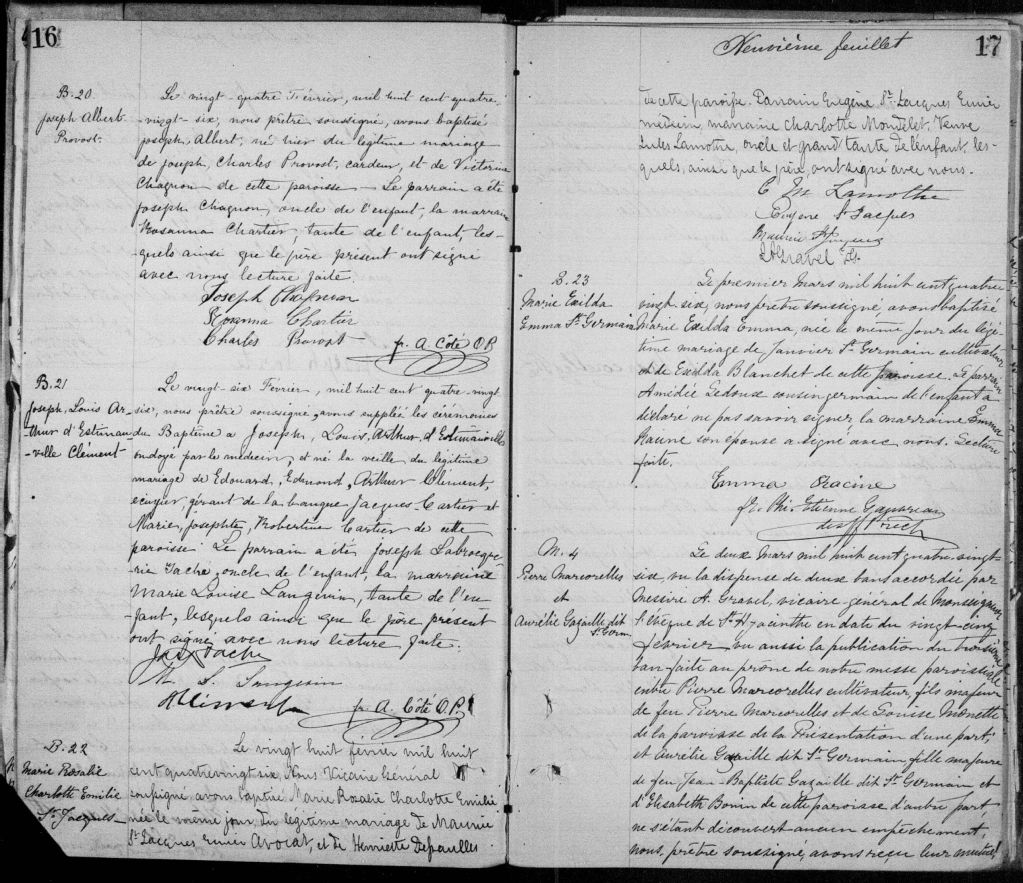 16
B. 20
Joseph Albert
Provost.
Le vingt-quatre Février, mil huit cent quatre-
vingt-six, nous prêtre soussigné, avons baptisé
Joseph Albert, né hier du légitime mariage
de Joseph, Charles Provost, cardeur, et de Victorine
Chagnon de cette paroisse. Le parrain a été
Joseph Chagnon, oncle de l'enfant, la marraine
Rosanna Chartier, tante de l'enfant, les-
quels ainsi que le père présent ont signé
avec nous lecture faite.
Joseph Chagnon
Rosanna Chartier
Charles Provost
fr. A. Côté O.P.
B. 21
Joseph, Louis Ar-
thur d'Estimau-
ville Clément
Le vingt-six Février, mil huit cent quatre-vingt
six, nous, prêtre soussigné, avons suppléé les cérémonies
du Baptême a Joseph, Louis, Arthur, d'Estimauville
ondoyé par le médecin, et né la veille du légitime
mariage de Edouard, Edmond, Arthur Clément,
écuyer, gérant de la banque Jacques-Cartier et
Marie, Josephte, Robertine Cartier de cette
paroisse. Le parrain a été Joseph Labrocque-
rie Taché, oncle de l'enfant, la marraine
Marie Louise Langevin, tante de l'en-
fant, lesquels ainsi que le père présent
ont signé avec nous lecture faite.
Jos Taché
M. L. Langevin
Clément
fr. A. Côté O.P.
B. 22
Marie Rosalie
Charlotte Emilie
St Jacques
Le vingt huit février mil huit
cent quatrevingt six, Nous Vicaire Général
soussigné avons baptisé Marie Rosalie Charlotte Emilie
née le même jour, du légitime mariage de Maurice
St Jacques Ecuier Avocat, et de Henriette Dessaulles
Neuvième feuillet
17
de cette paroisse. Parrain Eugène St Jacques Ecuier
médecin, marraine Charlotte Mondelet, Veuve
Jules Lamothe, oncle et grand'tante de l'enfant, les-
quels, ainsi que le père, ont signé avec nous.
C M Lamothe
Eugène St Jacques
Maurice St Jacques
A Gravel
B. 23
Marie Exilda
Emma St Germain
Le premier Mars mil huit cent quatre
vingt six, nous prêtre soussigné avons baptisé
Marie Exilda Emma, née le même jour du légi-
time mariage de Janvier St Germain cultivateur
et de Exilda Blanchet de cette paroisse. Le parrain
Amédée Ledoux cousin germain de l'enfant a
déclaré ne pas savoir signer la marraine Emma
Racine son épouse a signé avec nous. Lecture
faite.
Emma Racine
fr. Phi. Etienne Gauvreau
des ff. Prech
M. 4
Pierre Marcorelles
et
Aurélie Gazaille dit
St Germ
Le deux Mars mil huit cent quatre-vingt-
six, vu la dispense de deux bans accordée par
Messire A. Gravel, vicaire général de Monseigneur
l'évêque de St Hyacinthe en date du vingt-cinq
février vu aussi la publication du troisième
ban faite au prône de notre messe paroissiale
entre Pierre Marcorelles cultivateur, fils majeur
de feu Pierre Marcorelles et de Louise Monette
de la paroisse de la Présentation d'une part;
et Aurélie Gazaille dit St Germain fille majeure
de feu Jean Baptiste Gazaille dit St Germain et
d'Elisabeth Bonin de cette paroisse d'autre part,
ne s'étant découvert aucun empêchement,
nous, prêtre soussigné, avons reçu leur mutuel